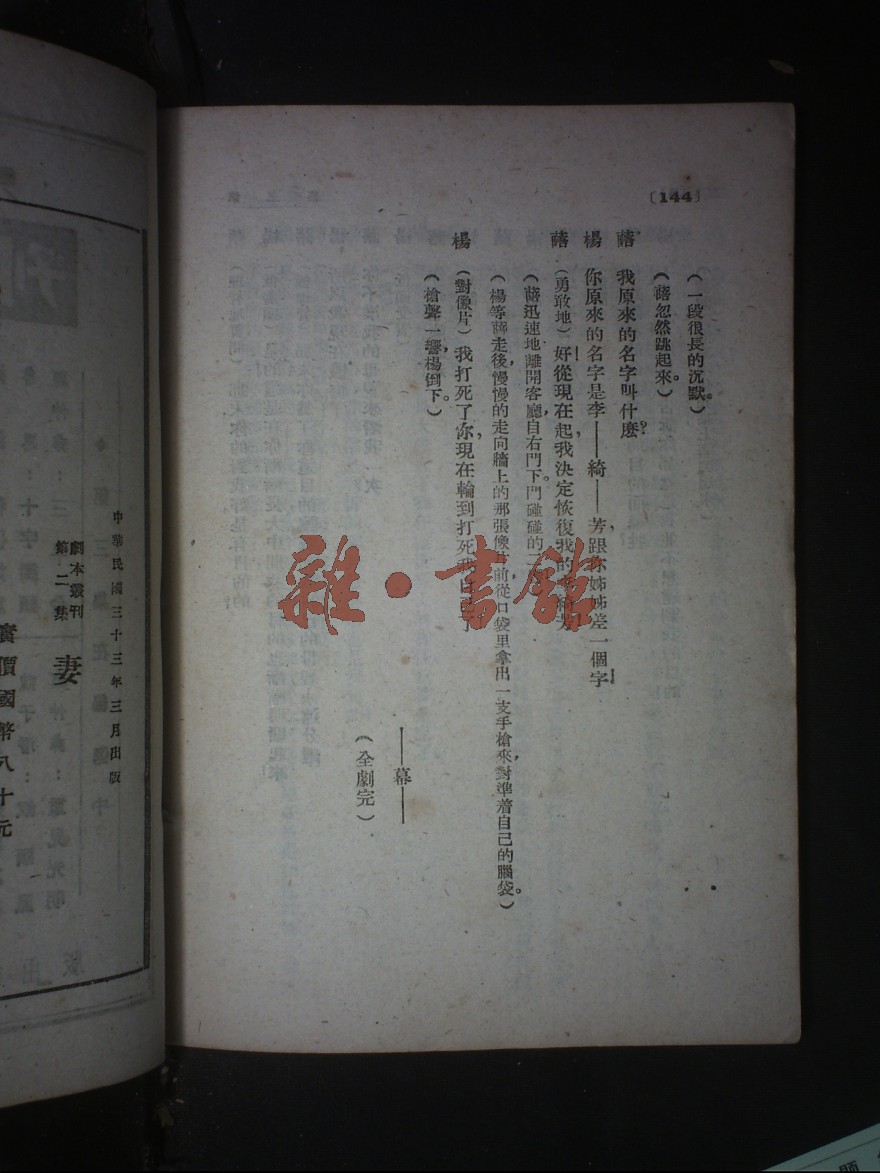 〔144〕
（一段很長的沉默。）
（蕗忽然跳起來。）
蕗　我原來的名字叫什麽？
楊　你原來的名字是李——綺——芳，跟你姊姊差一個字
蕗　（勇敢地）好！從現在起，我決定恢復我的
（蕗迅速地離開客廳，自右門下。門碰碰的
（楊等蕗走後，慢慢的走向牆上的那張像片前，從口袋里拿出一支手槍來，對準着自己的腦袋。）
楊　（對像片）我打死了你，現在輪到打死我自己了
（槍聲一響，楊倒下。）
——幕——
（全劇完）
中華民國三十三年三月出版
劇本叢刊
第二集
妻
實價國幣八十元
雜·書館